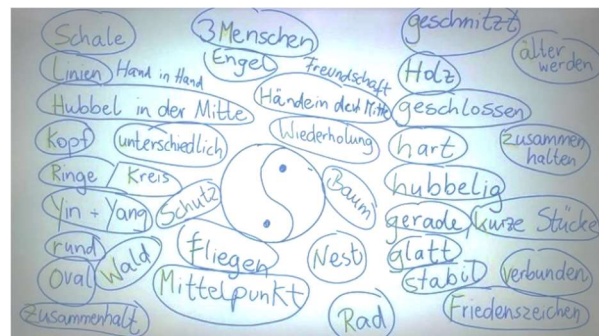 Schale
Linien
Hand in Hand
Hubbel in der Mitte
Kopf
unterschiedlich
Ringe
Kreis
Yin + Yang
Schutz
rund
Wald
Oval
Zusammenhalt
3 Menschen
Engel
Freundschaft
Hände in der Mitte
Wiederholung
Baum
fliegen
Nest
Mittelpunkt
Rad
geschnitzt
älter
werden
Holz
geschlossen
hart
zusammen
halten
hubbelig
gerade
kurze Stücke
glatt
stabil
verbunden
Friedenszeichen